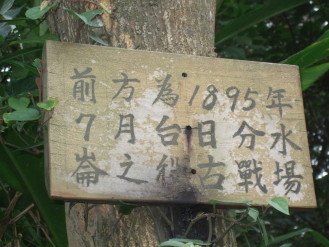 前方為1895年
7月台日分水
崙之役古戰場